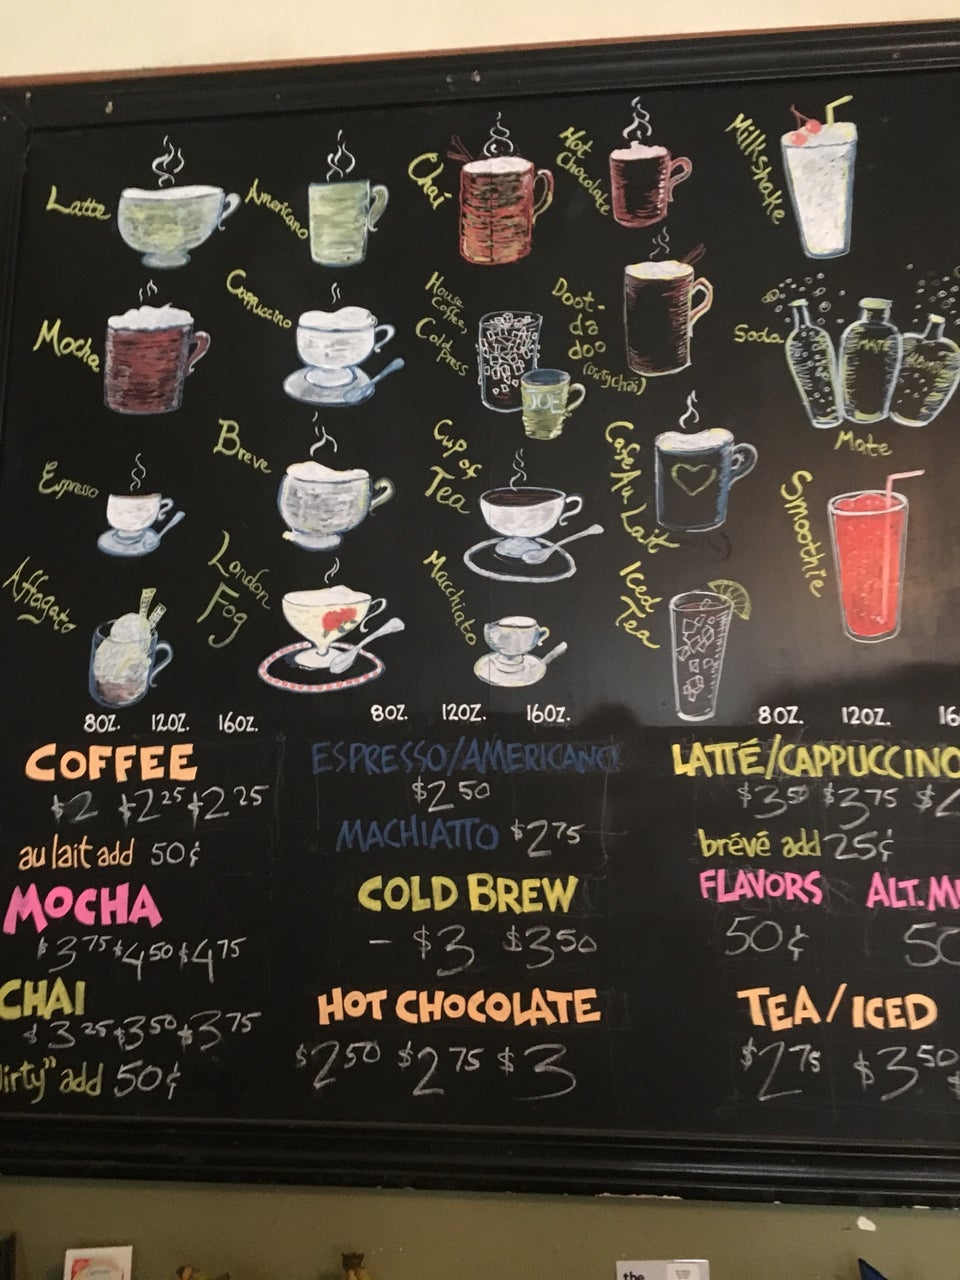 Latte
Americano
Chai
Hot
Chocolate
Milkshake
Mocha
Cappuccino
House
Coffee,
Coldpress
JOE
Doot-
da
doo
(Dirty chai)
Soda
MATE
Mate
Espresso
Breve
Cup of
Tea
Cafe Au Lait
Smoothie
Affagato
London
Fog
Macchiato
Iced
Tea
8OZ. 12OZ. 16OZ.
8OZ. 12OZ. 16OZ.
8OZ. 12OZ. 16
COFFEE
$2 $2 25 $2 25
au lait add 50¢
MOCHA
$3 75 $4 50 $4 75
CHAI
$3 25 $3 50 $3 75
irty" add 50¢
ESPRESSO/AMERICANO
$2 50
MACHIATTO $2 75
COLD BREW
- $3 $3 50
HOT CHOCOLATE
$2 50 $2 75 $3
LATTÉ/CAPPUCCINO
$3 50 $3 75 $
brévé add 25¢
FLAVORS ALT. M
50¢ 50
TEA/ICED
$2 75 $3 50 $
the